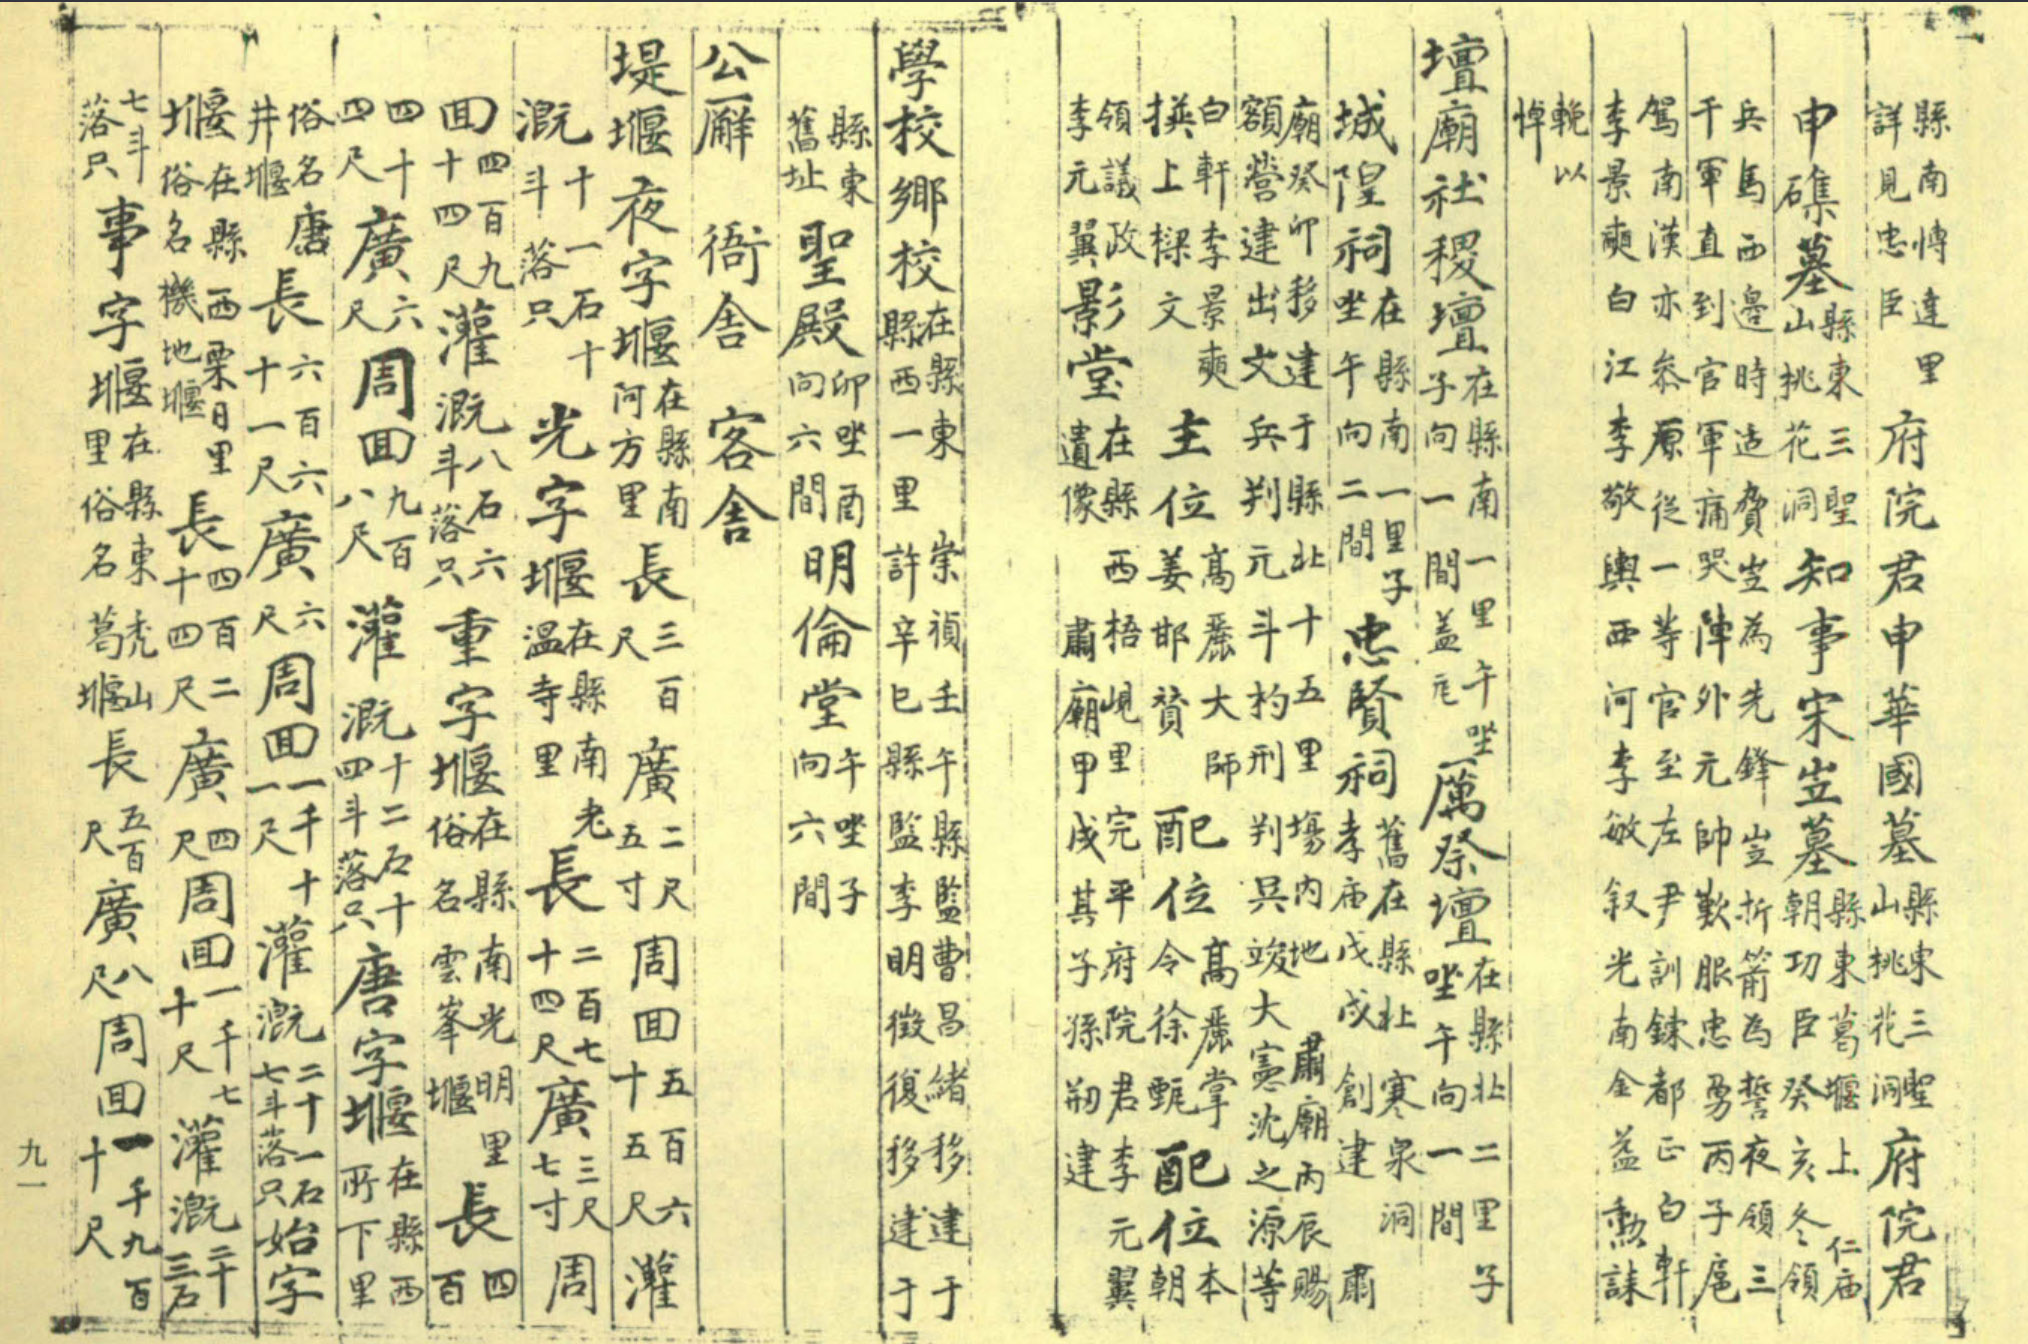 縣南愽達里詳見忠臣府院君申華國墓縣東三聖山桃花洞府院君
申磼墓縣東三聖山桃花洞知事宋岦墓縣東葛堰上 仁庙朝功臣癸亥冬領
兵馬西邊時适賛岦為先鋒岦折箭為誓夜領三千軍直到官軍痛哭陣外元帥歎服忠勇丙子扈
駕南漢亦叅原從一等官至左尹訓鍊都正白軒李景奭白江李敬輿西河李敏叙光南金益勲誄
輓以悼
壇廟社稷壇在縣南一里午坐子向一間盖瓦厲祭壇在縣北二里子坐午向一間
城隍祠在縣南一里子坐午向二間忠賢祠舊在縣北寒泉洞孝庙戊戌創建 肅
廟癸卯移建于縣北十五里塲内地 肅廟丙辰賜額營建出文兵判元斗杓刑判吳竣大憲沈之源等
白軒李景奭撰上樑文主位高麗大師姜邯賛配位高麗掌令徐甄配位本朝
領議政李元翼影堂在縣西梧峴里完平府院君李元翼遺像 肅廟甲戌其子孫刱建
學校鄉校在縣東 崇禎壬午縣監曹昌緒移建于縣西一里許辛巳縣監李明徵復移建于
縣東舊址聖殿卯坐酉向六間明倫堂午坐子向六間
公廨 衙舍 客舍
堤堰夜字堰在縣南河方里長三百尺廣二尺五寸周回五百六十五尺灌
溉十一石十斗落只光字堰在縣南老温寺里長二百七十四尺廣三尺七寸周
回四百九十四尺灌溉八石六斗落只重字堰在縣南光明里俗名雲峯堰長四百
四十四尺廣六尺周回九百八尺灌溉十二石十四斗落只唐字堰在縣西所下里
俗名唐井堰長六百六十一尺廣六尺周回一千十一尺灌溉二十一石七斗落只始字
堰在縣西栗日里俗名機地堰長四百二十四尺廣四尺周回一千七十尺灌溉二十三石
七斗落只事字堰在縣東禿山里俗名葛堰長五百尺廣八尺周回一千九百十尺
九一